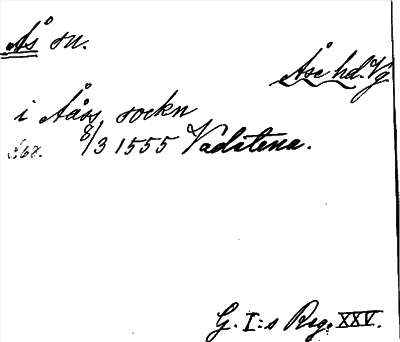 Ås sn.
Åse hd. Vg
i Aåss sockn
8/3 1555 Vadstena.
G. I:s Reg. XXV.